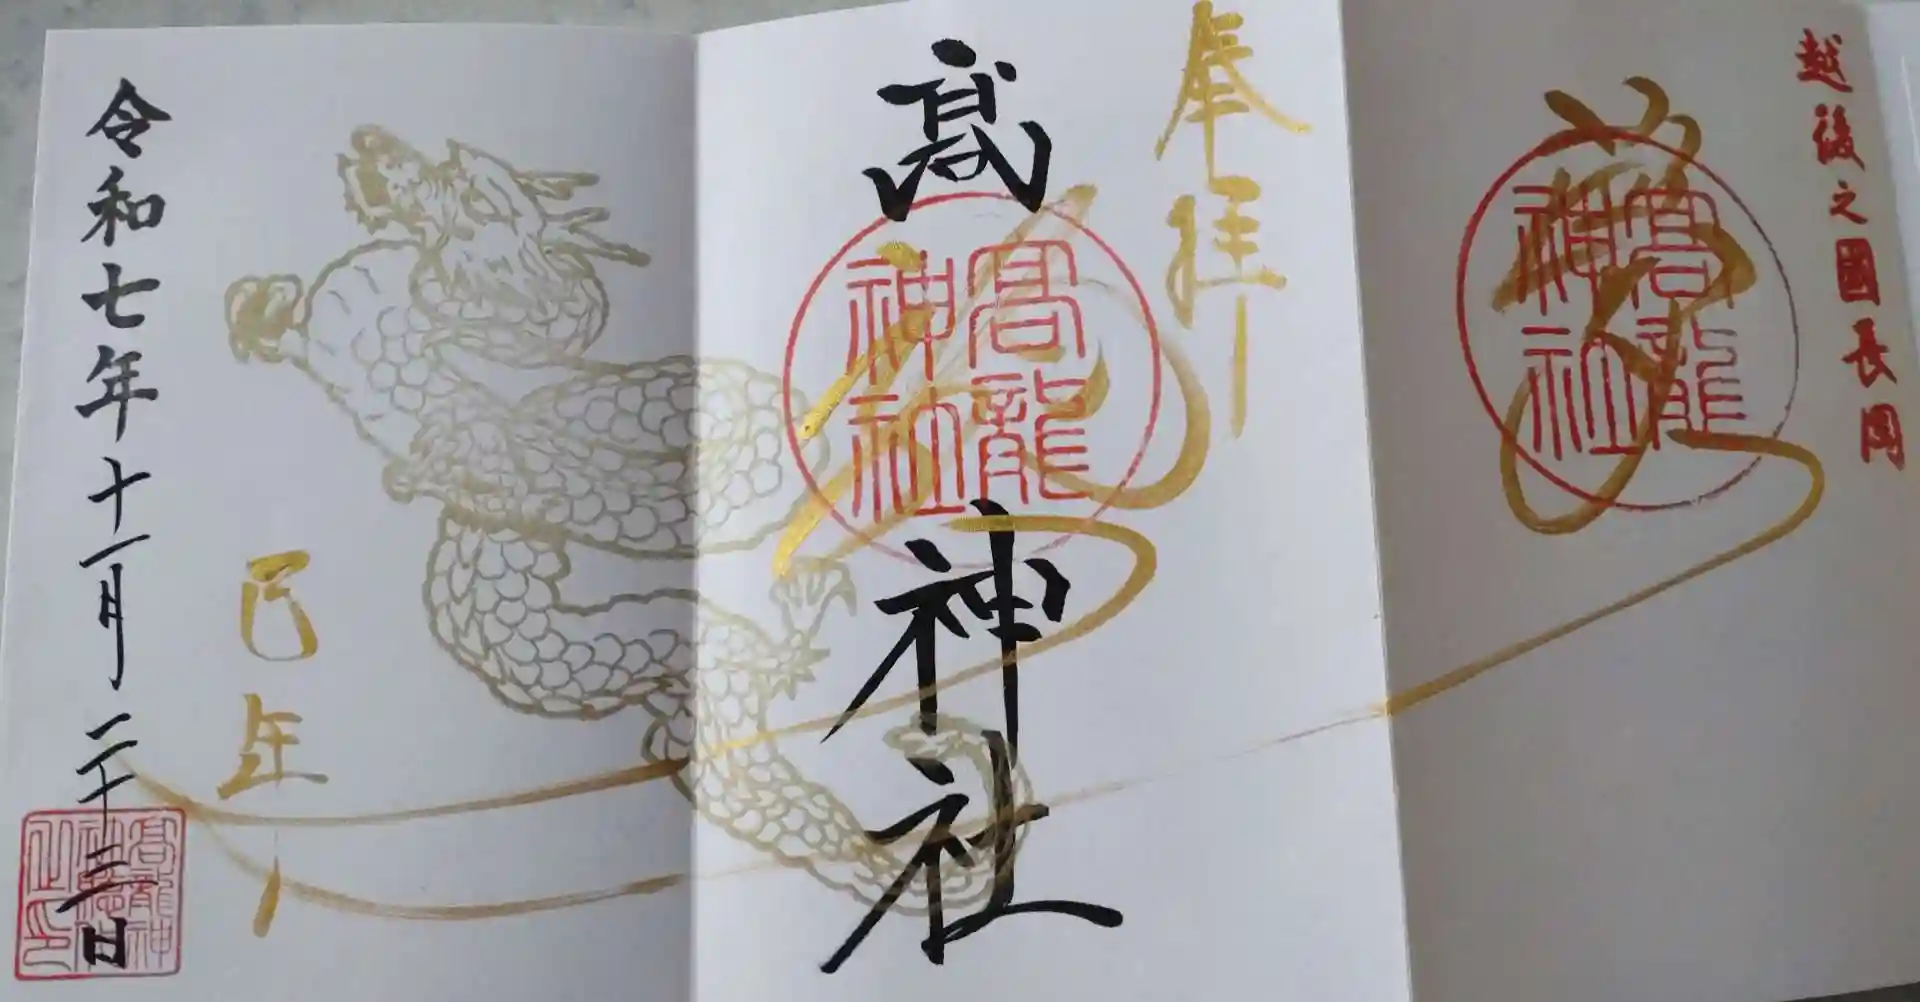 越後之國長岡
高龍
神社
奉拝
髙龍神社
高龍
神社
巳年
令和七年十一月二十三日